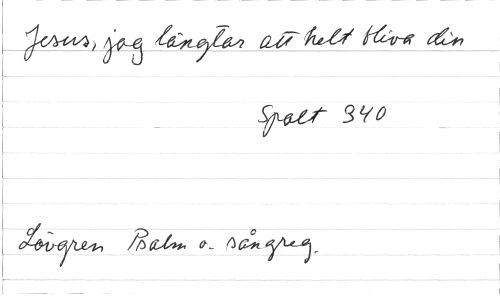 Jesus, jag längtar att helt bliva din
Spalt 340
Lövgren Psalm o. sångreg.